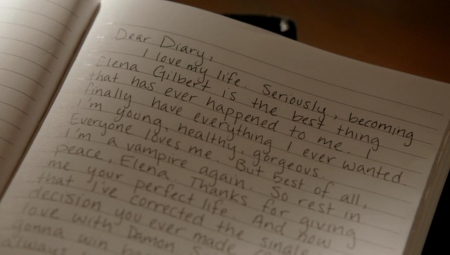 Dear Diary,
I love my life. Seriously, becoming
Elena Gilbert is the best thing
that has ever happened to me. I
finally have everything I ever wanted
I'm young, healthy, gorgeous
Everyone loves me. But best of all,
I'm a vampire again. So rest in
peace, Elena. Thanks for giving
me your perfect life. And now
that I've corrected the single
decision you ever made
love with Damon
gonna win
always